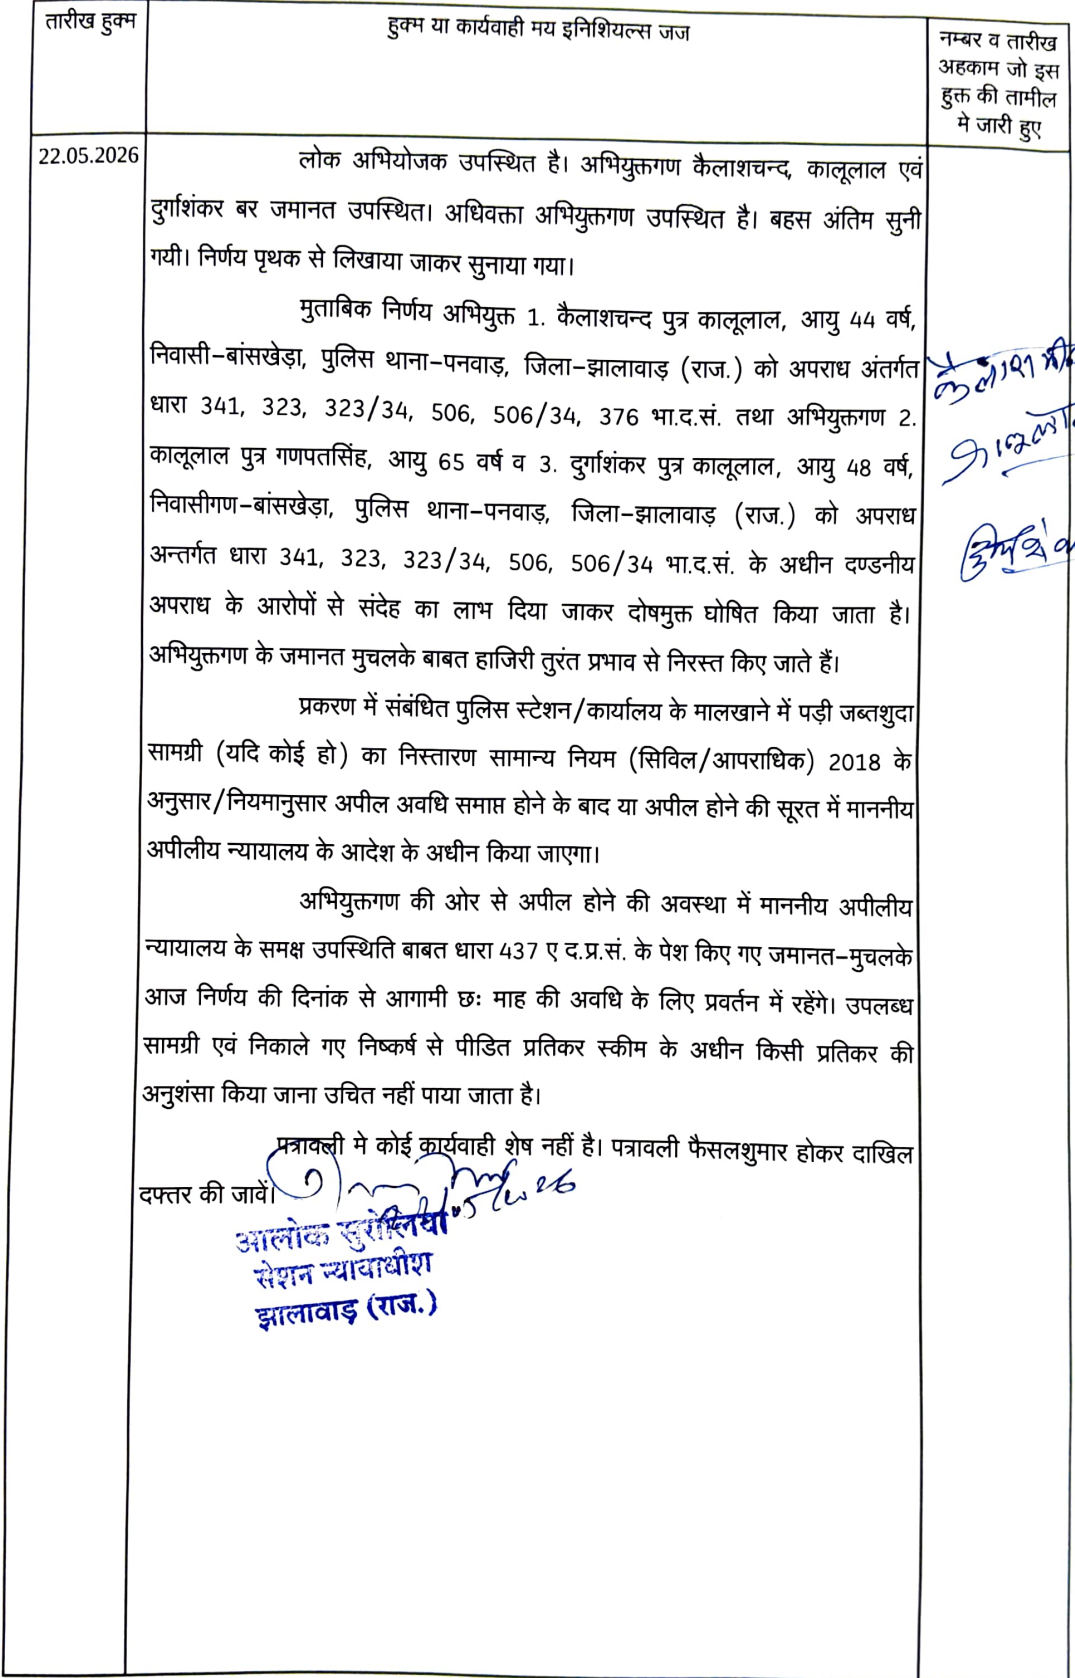 तारीख हुक्म
हुक्म या कार्यवाही मय इनिशियल्स जज
नम्बर व तारीख
अहकाम जो इस
हुक्त की तामील
मे जारी हुए
22.05.2026
लोक अभियोजक उपस्थित है। अभियुक्तगण कैलाशचन्द, कालूलाल एवं
दुर्गाशंकर बर जमानत उपस्थित। अधिवक्ता अभियुक्तगण उपस्थित है। बहस अंतिम सुनी
गयी। निर्णय पृथक से लिखाया जाकर सुनाया गया।
मुताबिक निर्णय अभियुक्त 1. कैलाशचन्द पुत्र कालूलाल, आयु 44 वर्ष,
निवासी-बांसखेड़ा, पुलिस थाना-पनवाड़, जिला-झालावाड़ (राज.) को अपराध अंतर्गत
धारा 341, 323, 323/34, 506, 506/34, 376 भा.द.सं. तथा अभियुक्तगण 2.
कालूलाल पुत्र गणपतसिंह, आयु 65 वर्ष व 3. दुर्गाशंकर पुत्र कालूलाल, आयु 48 वर्ष,
निवासीगण-बांसखेड़ा, पुलिस थाना-पनवाड़, जिला-झालावाड़ (राज.) को अपराध
अन्तर्गत धारा 341, 323, 323/34, 506, 506/34 भा.द.सं. के अधीन दण्डनीय
अपराध के आरोपों से संदेह का लाभ दिया जाकर दोषमुक्त घोषित किया जाता है।
अभियुक्तगण के जमानत मुचलके बाबत हाजिरी तुरंत प्रभाव से निरस्त किए जाते हैं।
प्रकरण में संबंधित पुलिस स्टेशन/कार्यालय के मालखाने में पड़ी जब्तशुदा
सामग्री (यदि कोई हो) का निस्तारण सामान्य नियम (सिविल/आपराधिक) 2018 के
अनुसार/नियमानुसार अपील अवधि समाप्त होने के बाद या अपील होने की सूरत में माननीय
अपीलीय न्यायालय के आदेश के अधीन किया जाएगा।
अभियुक्तगण की ओर से अपील होने की अवस्था में माननीय अपीलीय
न्यायालय के समक्ष उपस्थिति बाबत धारा 437 ए द.प्र.सं. के पेश किए गए जमानत-मुचलके
आज निर्णय की दिनांक से आगामी छः माह की अवधि के लिए प्रवर्तन में रहेंगे। उपलब्ध
सामग्री एवं निकाले गए निष्कर्ष से पीडित प्रतिकर स्कीम के अधीन किसी प्रतिकर की
अनुशंसा किया जाना उचित नहीं पाया जाता है।
पत्रावली मे कोई कार्यवाही शेष नहीं है। पत्रावली फैसलशुमार होकर दाखिल
दफ्तर की जावें।
आलोक सुरोलिया
सेशन न्यायाधीश
झालावाड़ (राज.)